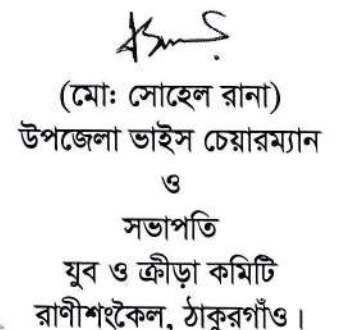 (মোঃ সোহেল রানা)
উপজেলা ভাইস চেয়ারম্যান
ও
সভাপতি
যুব ও ক্রীড়া কমিটি
রাণীশংকৈল, ঠাকুরগাঁও।